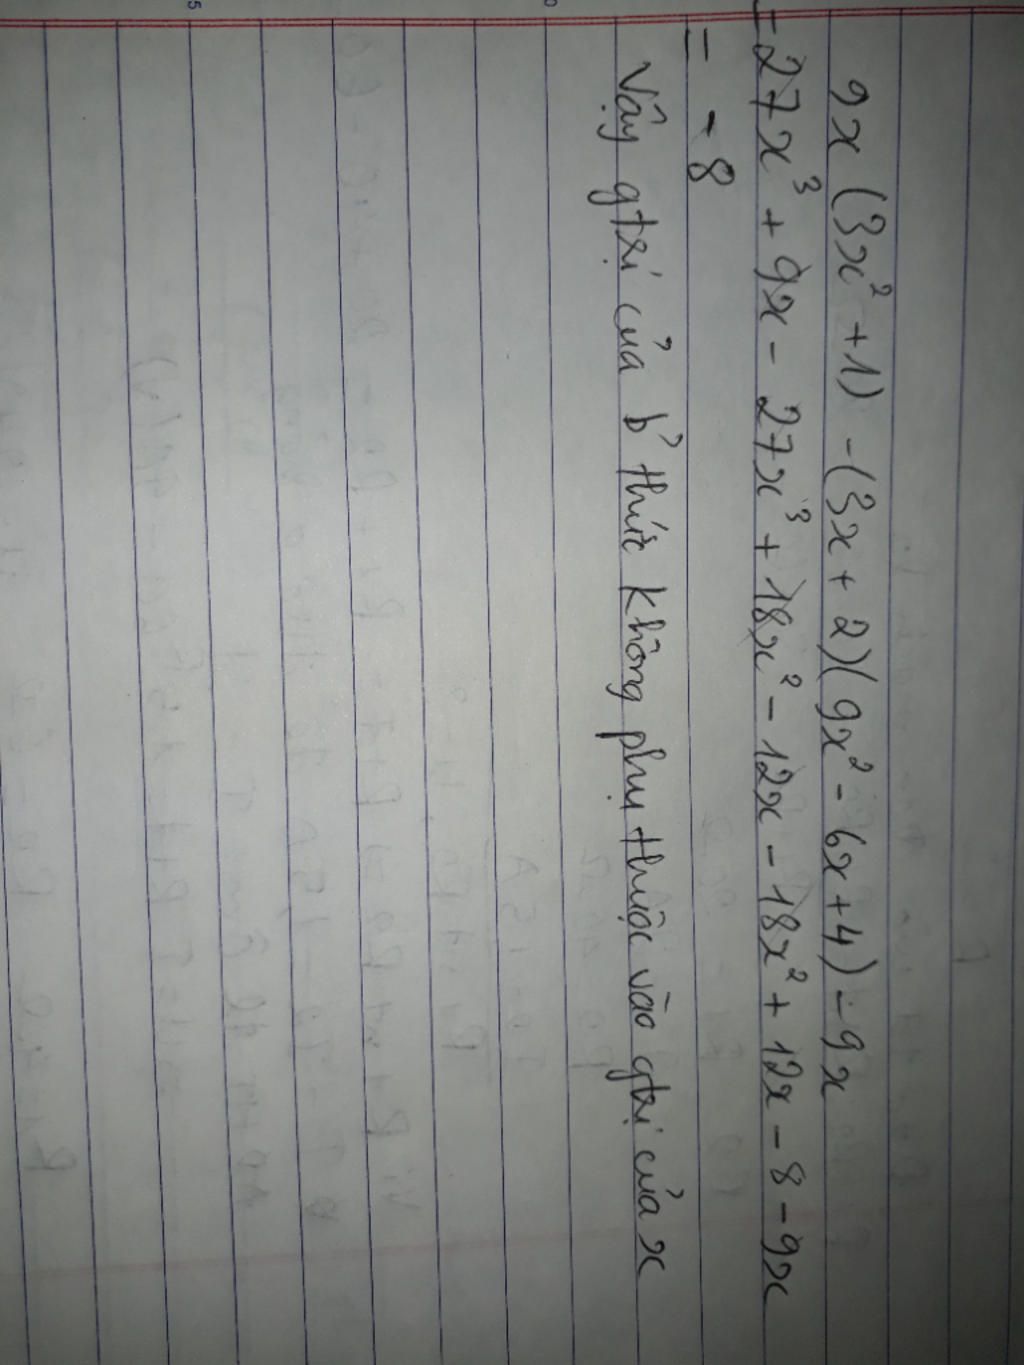 9x (3x² + 1) - (3x + 2)(9x² - 6x + 4) - 9x
= 27x³ + 9x - 27x³ + 18x² - 12x - 18x² + 12x - 8 - 9x
= -8
Vậy gtrị của b' thức không phụ thuộc vào gtrị của x